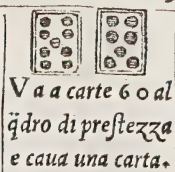 V a a carte 6 o al
q̃dro di preſtezza
e caua una carta.